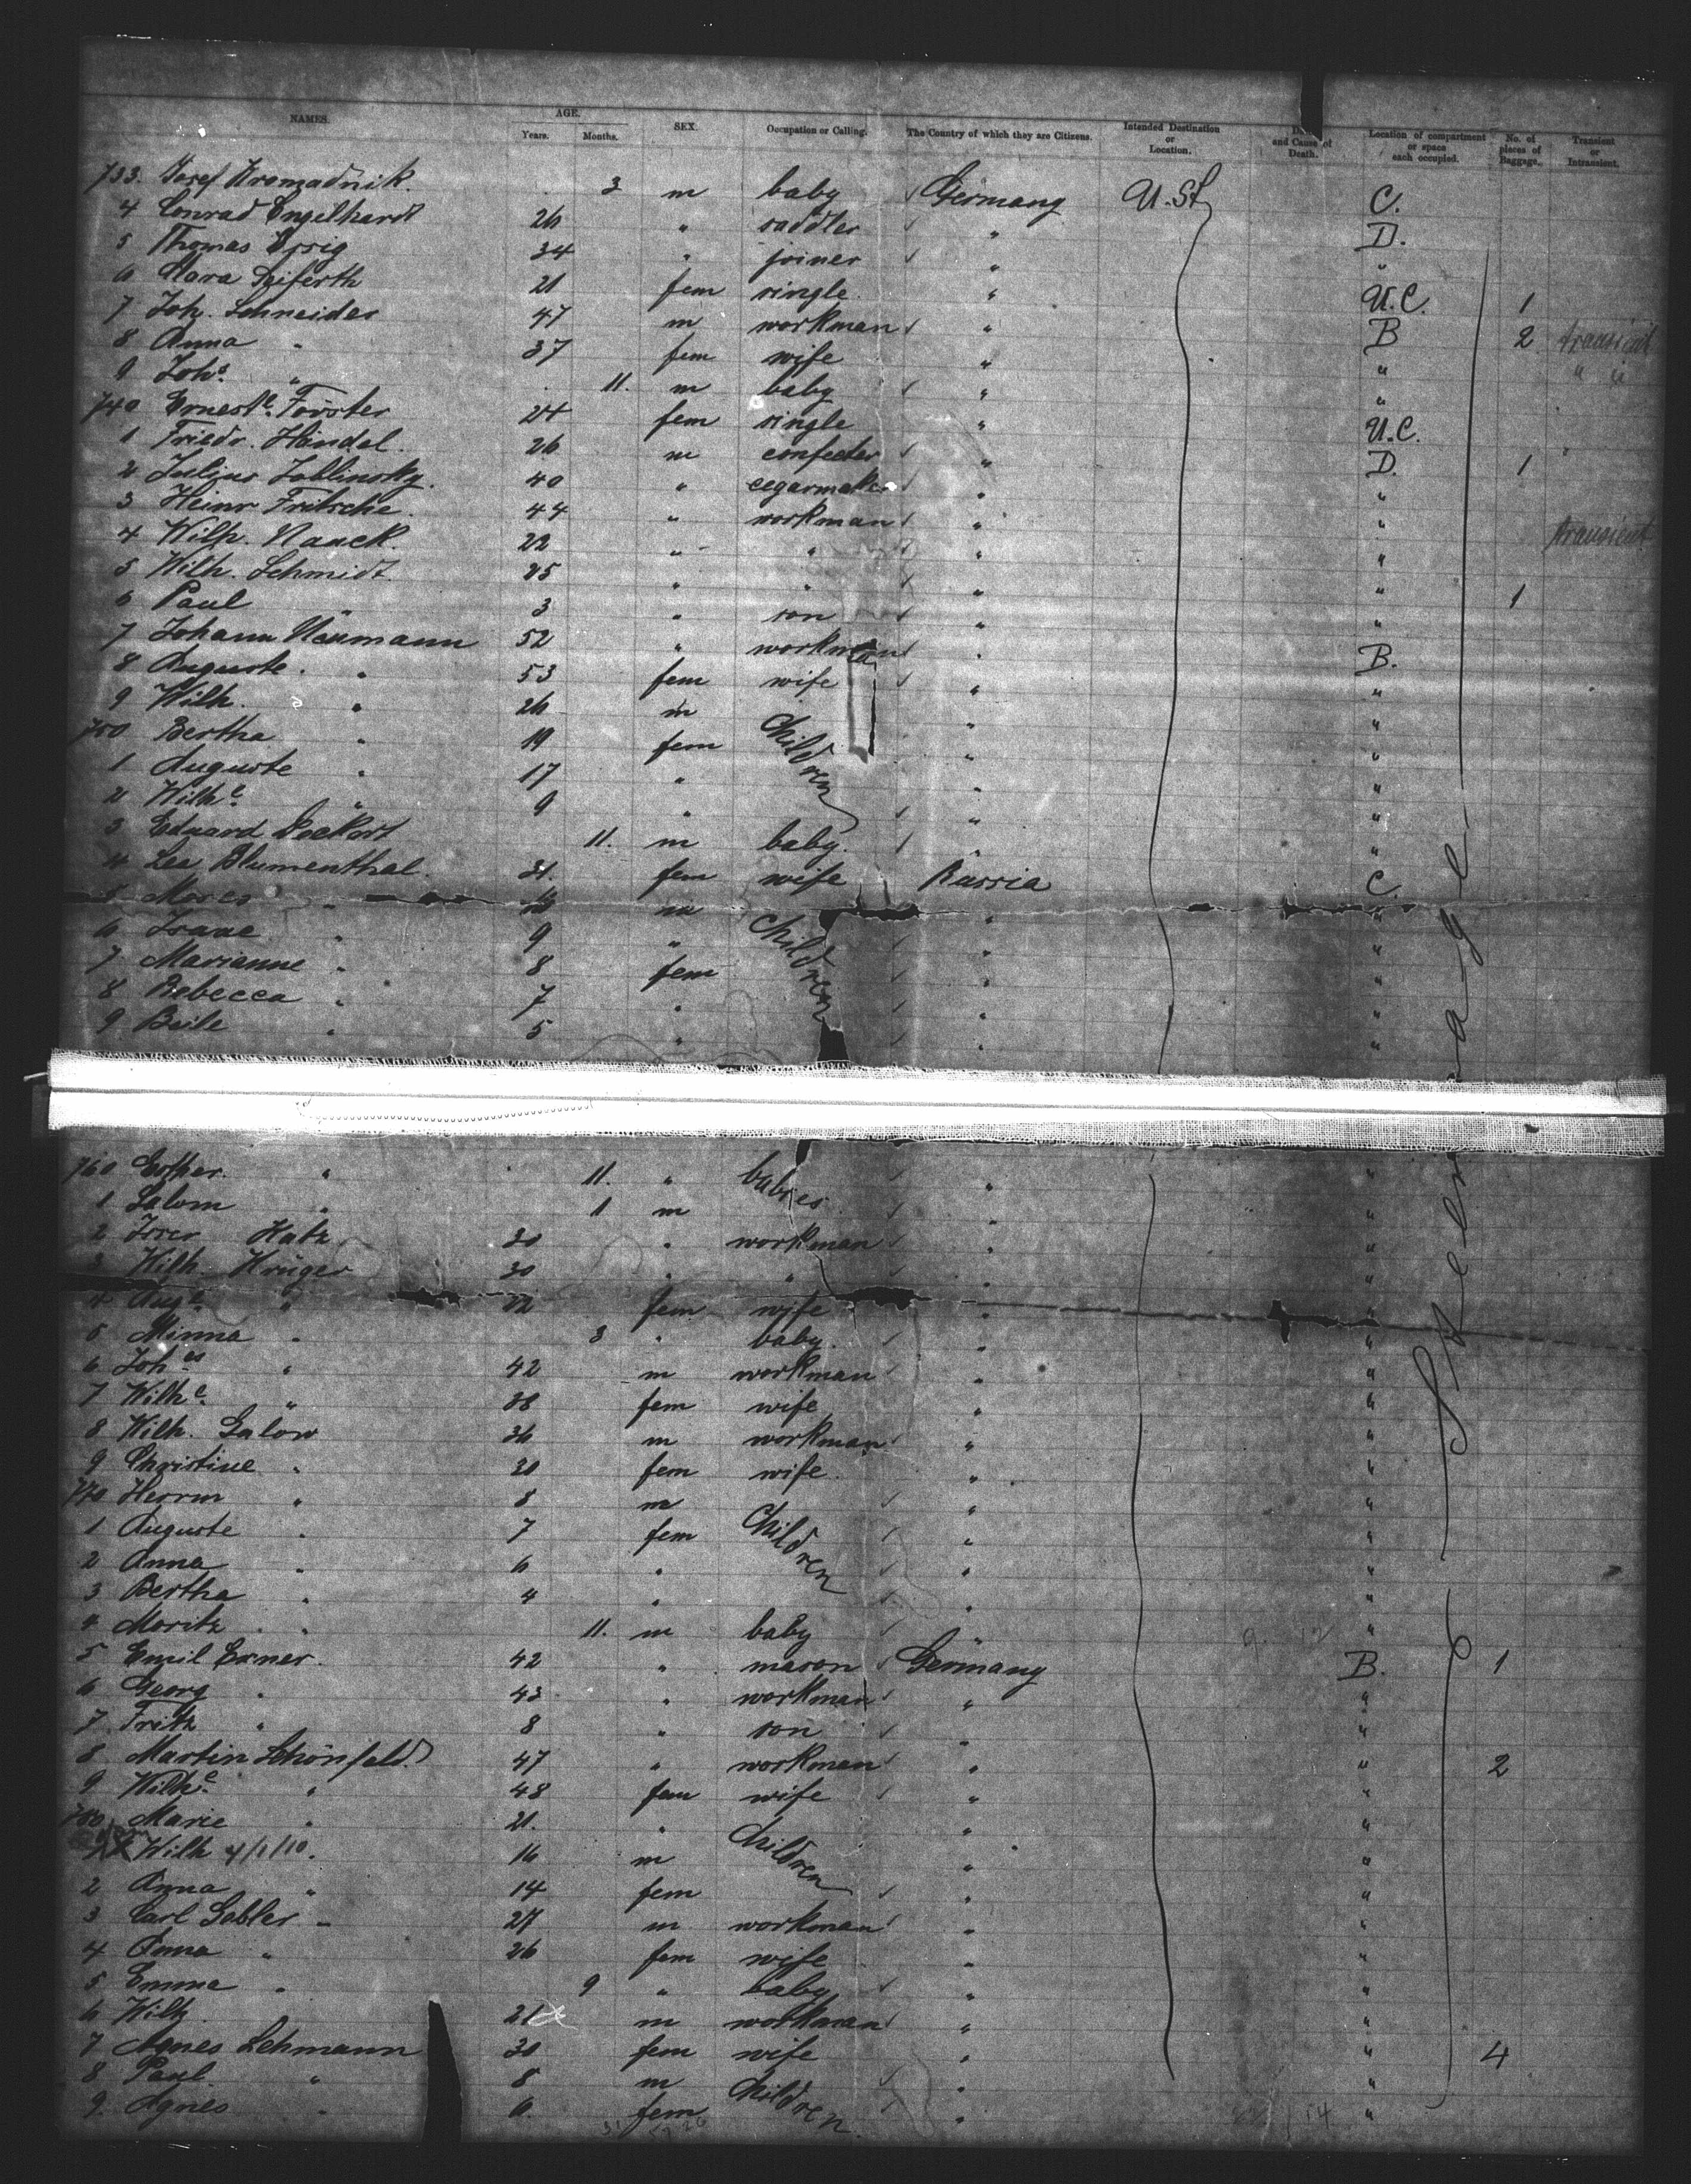 NAMES. AGE. Years. Months. SEX. Occupation or Calling. The Country of which they are Citizens. Intended Destination or Location. and Cause of Death. Location of compartment or space each occupied. No. of pieces of Baggage. Transient or Intransient.
733. Josef Hromadnik. 3 m baby Germany U.St. C.
4 Conrad Engelhardt 26 " saddler " D.
5 Thomas Essig 34 " joiner " "
6 Clara Seiferth 21 fem single " U.C. 1
7 Joh. Schneider 47 m workman " B 2 transient
8 Anna " 37 fem wife " " " "
9 Johs. " 11. m baby " "
740 Erneste. Förster 24 fem single " U.C.
1 Friedr. Händel. 26 m confecter " D. 1
2 Julius Joblinsky. 40 " cegarmaker " "
3 Heinr Fritsche. 44 " workman " " transient
4 Wilh. Nauck. 22 " " " "
5 Wilh. Schmidt 25 " " " " 1
6 Paul " 3 " son " "
7 Johann Neumann 52 " workman " B.
8 Auguste. " 53 fem wife " "
9 Wilh. " 26 m Children " "
750 Bertha " 19 fem " "
1 Auguste " 17 " " "
2 Wilhe. " 9 " " "
3 Eduard 11. m baby. " "
4 Lea Blumenthal. 31. fem wife Russia C.
5 Moses " m Children " "
6 Isaac " 9 " " "
7 Marianne " 8 fem " "
8 Rebecca " 7 " " "
9 Beile " 5 " " "
Steerage
760 Esther. " 11. " babies " "
1 Salom " 1 m " "
2 Katz 30 " workman " "
3 Wilh. Krüger 30 " " " "
4 Auge. " 22 fem wife " "
5 Minna " 3 " baby. " "
6 Johes " 42 m workman " "
7 Wilhe. " 38 fem wife " "
8 Wilh. Galow 36 m workman " "
9 Christine " 30 fem wife. " "
770 Herrm " 8 m Children " "
1 Auguste " 7 fem " "
2 Anna " 6 " " "
3 Bertha " 4 " " "
4 Moritz " 11. m baby " "
5 Emil Exner. 42 " mason Germany B. 1
6 Georg " 43 " workman " "
7 Fritz " 8 " son " "
8 Martin Schönfeld 47 " workman " " 2
9 Wilhe. " 48 fem wife " "
780 Marie " 21. " Children " "
Wilh 4/1/10. 16 m " "
2 Anna " 14 fem " "
3 Carl Gebler 27 m workman " "
4 Anna " 26 fem wife " "
5 Emma " 9 " baby " "
6 Wilh. 21 m workman " "
7 Agnes Lehmann 30 fem wife " " 4
8 Paul. " 8 m Children " "
9. Agnes " 6. fem " "